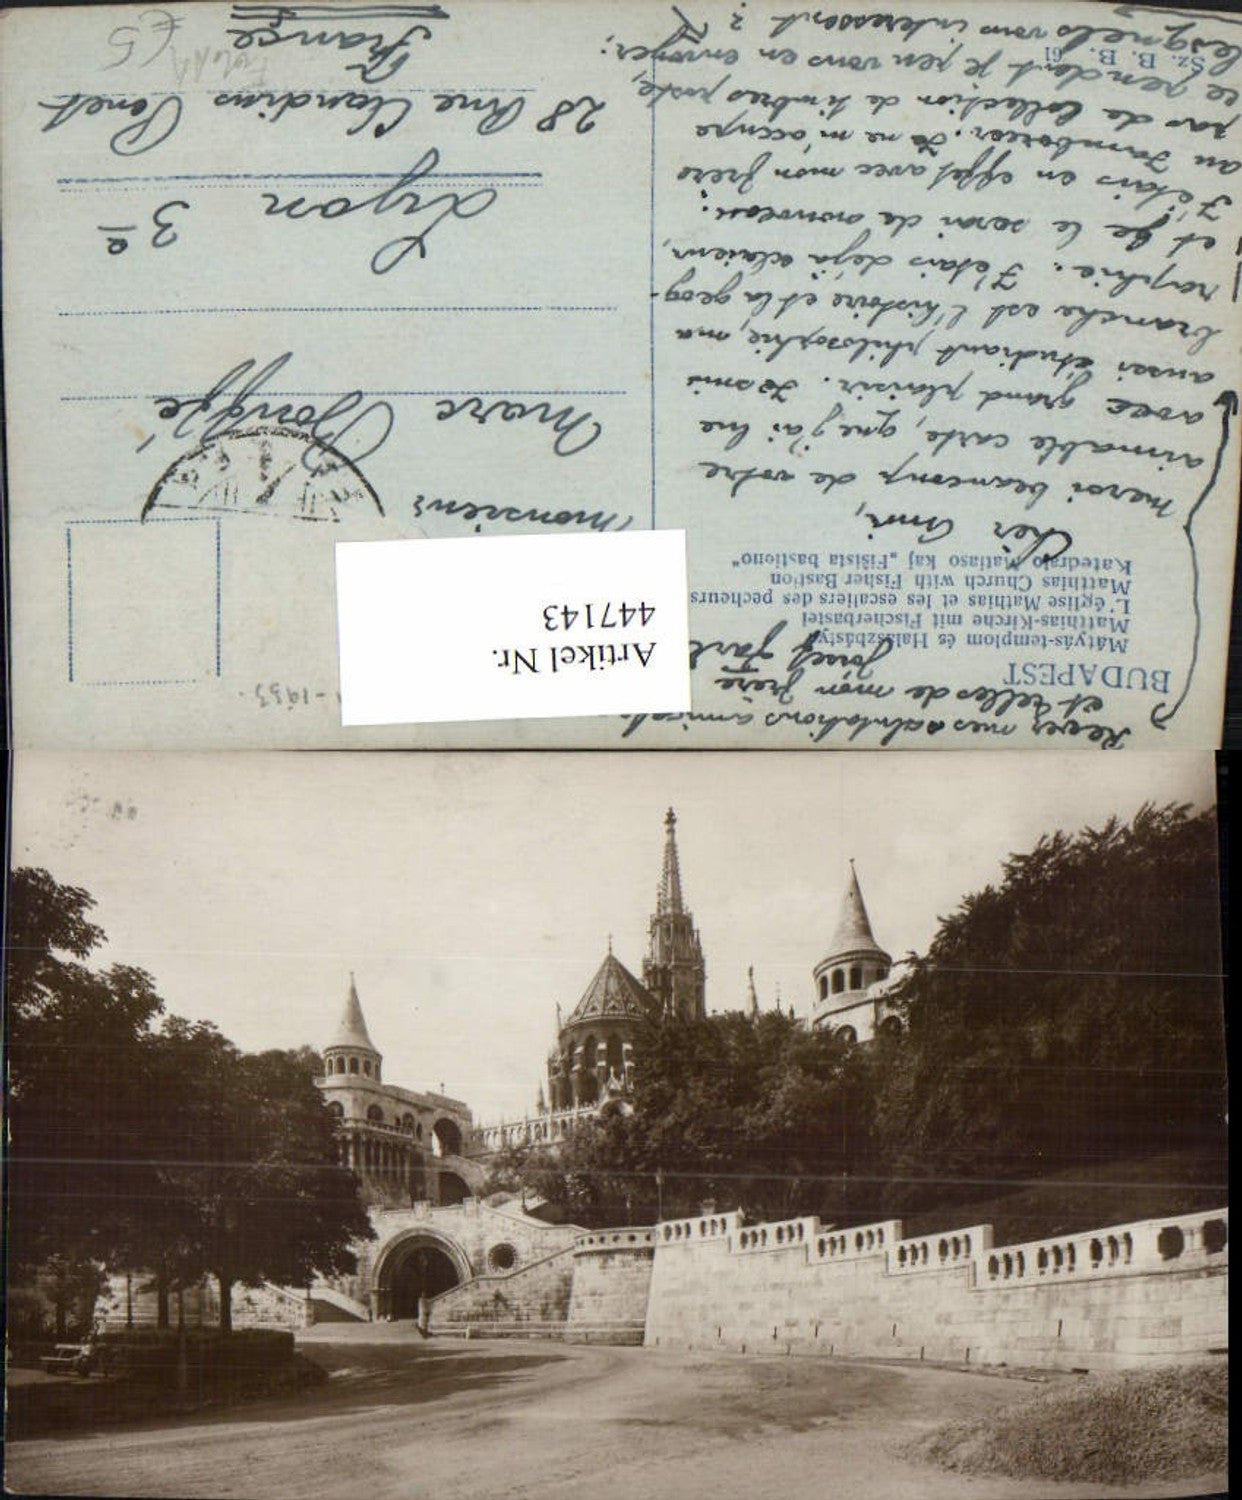 BUDAPEST
Mátyás-templom és Halászbástya
Matthias-Kirche mit Fischerbastei
L'église Mathias et les escaliers des pecheurs
Matthias Church with Fisher Bastion
Katedralo Matiaso kaj „Fiŝista bastiono"
Cher Ami,
merci beaucoup de votre
aimable carte, que j'ai lue
avec grand plaisir. Je suis
aussi étudiant philosophie, ma
branche est l'histoire et la géog-
raphie. J'étais déjà
et je le serai de nouveau.
J'étais en effet avec mon frère
au Jamboree. Je ne m'occupe
pas de collection de timbres poste,
ce pendant je peu vous en envoyer;
lesquels vous interessent?
Sz. B. B. 61
Recev mes salutations amicales
et celles de mon frère
Josef
Artikel Nr.
447143
Monsieur
Marc
Lyon 3e
28 Rue Claudius Penet
France